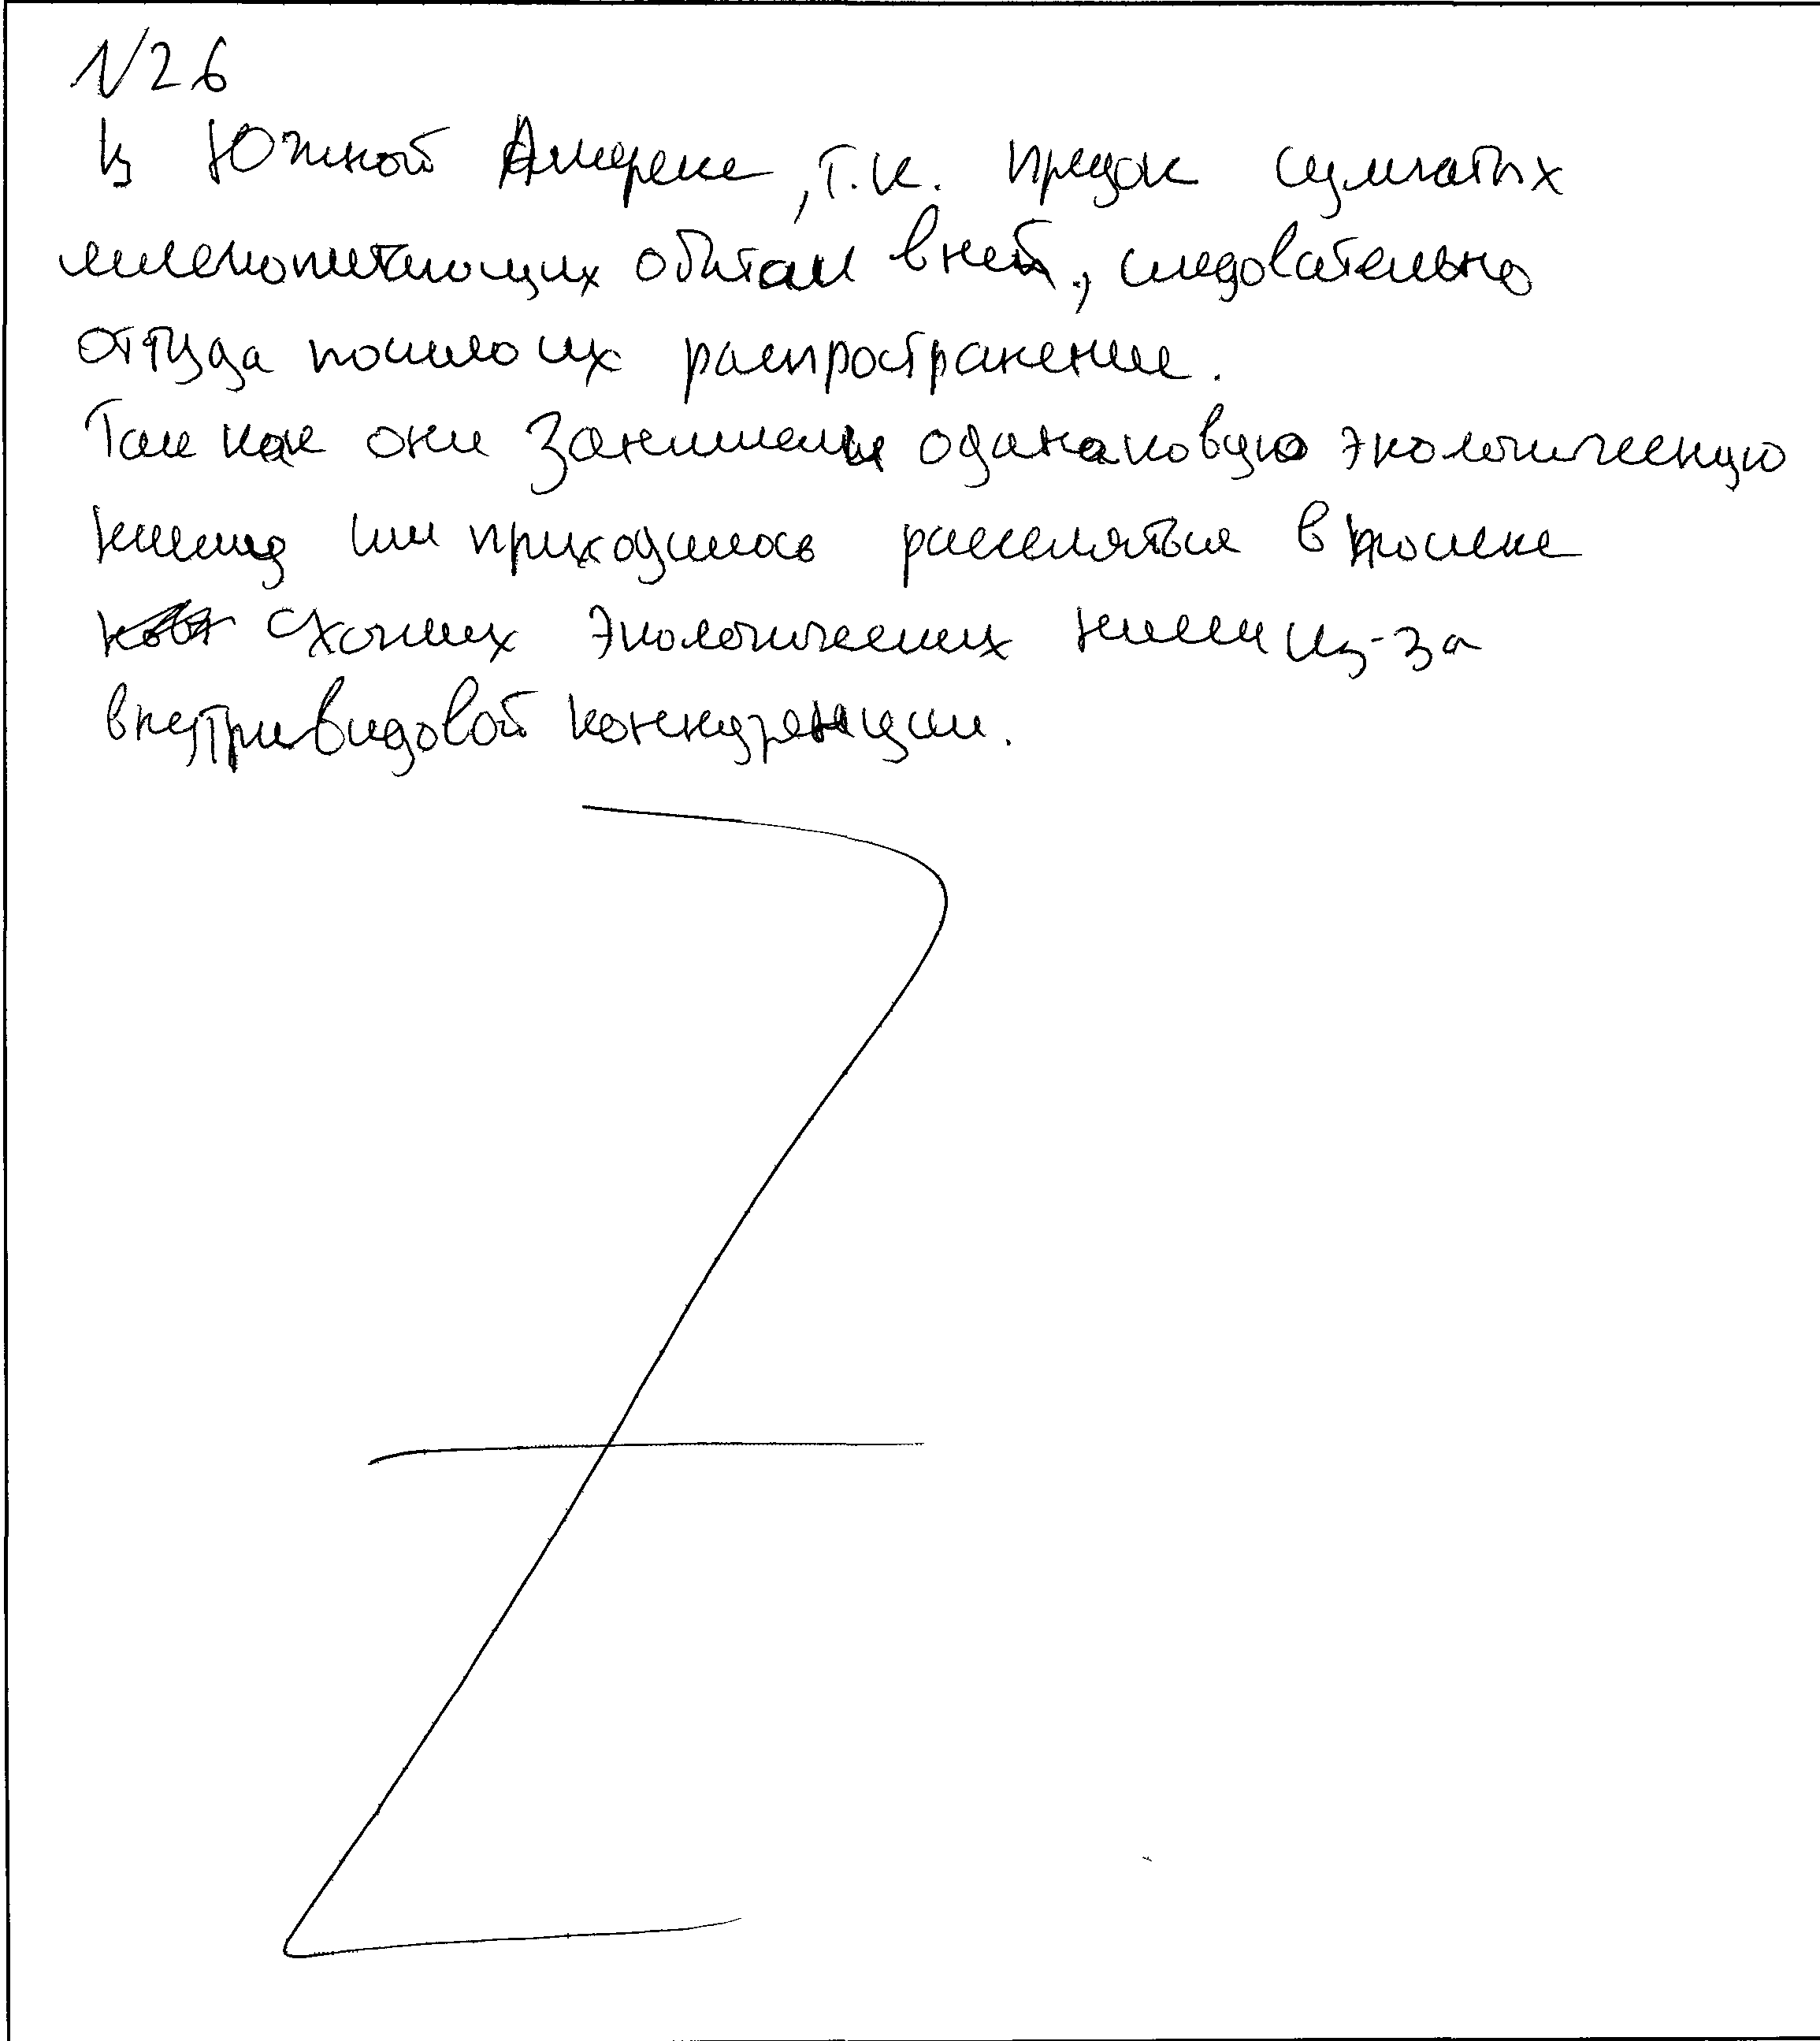 N26
Из Южной Америке, т.к. предок сумчатых
млекопитающих обитал в ней, следовательно
оттуда пошло их распространение.
Так как они занимали одинаковую экологическую
нишу им приходилось расселяться в поиске
схожих экологических ниш из-за
внутривидовой конкуренции.